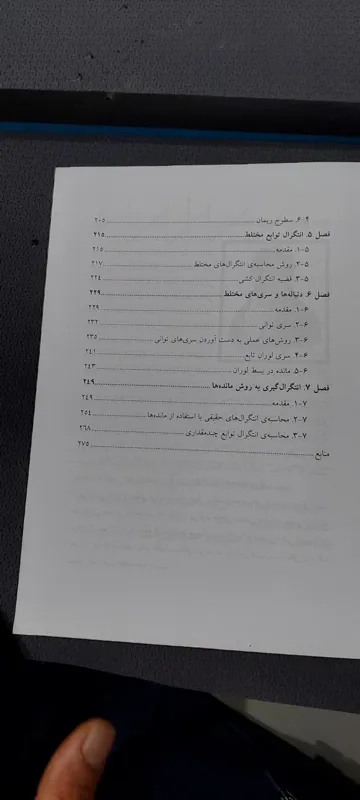 ۴-۶. سطوح ریمان ۲۰۵
فصل ۵. انتگرال توابع مختلط ۲۱۵
۵-۱. مقدمه ۲۱۵
۵-۲. روش محاسبه‌ی انتگرال‌های مختلط ۲۱۷
۵-۳. قضیه انتگرال کشی ۲۲۴
فصل ۶. دنباله‌ها و سری‌های مختلط ۲۲۹
۶-۱. مقدمه ۲۲۹
۶-۲. سری توانی ۲۳۲
۶-۳. روش‌های عملی به دست آوردن سری‌های توانی ۲۳۵
۶-۴. سری لوران تابع ۲۴۱
۶-۵. مانده در بسط لوران ۲۴۳
فصل ۷. انتگرال‌گیری به روش مانده‌ها ۲۴۹
۷-۱. مقدمه ۲۴۹
۷-۲. محاسبه‌ی انتگرال‌های حقیقی با استفاده از مانده‌ها ۲۵۴
۷-۳. محاسبه‌ی انتگرال توابع چندمقداری ۲۶۸
منابع ۲۷۵